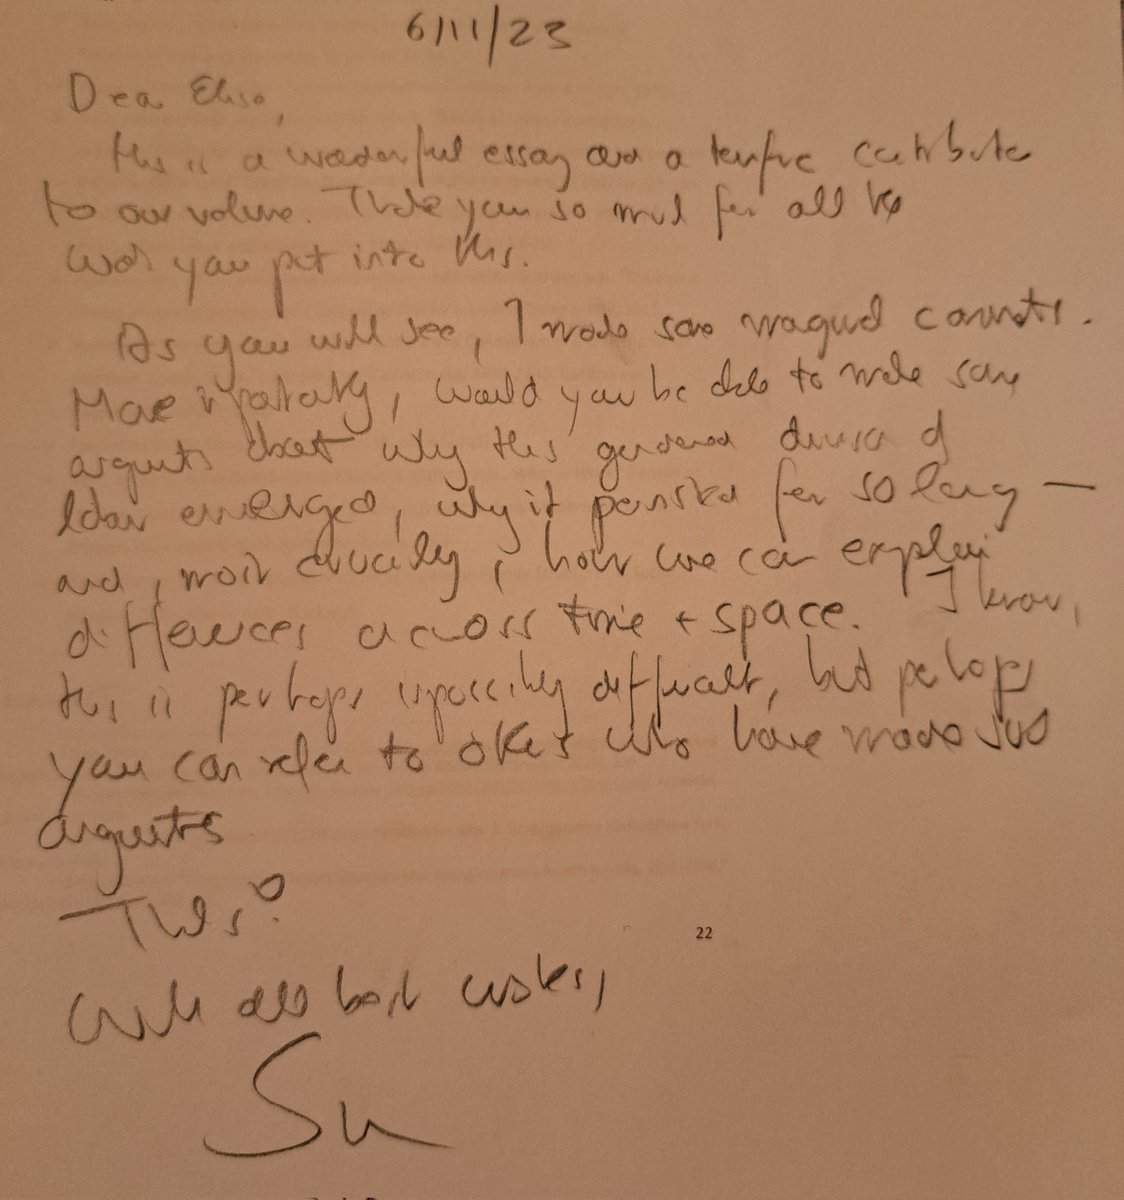 6/11/23
Dear Elisa,
this is a wonderful essay and a terrific contribution
to our volume. Thank you so much for all the
work you put into this.
As you will see, I made some marginal comments.
More importantly, would you be able to make some
arguments about why this gendered division of
labor emerged, why it persisted for so long —
and, most crucially, how we can explain
differences across time + space. I know,
this is perhaps impossibly difficult, but perhaps
you can refer to others who have made such
arguments
Thanks!
22
With all best wishes,